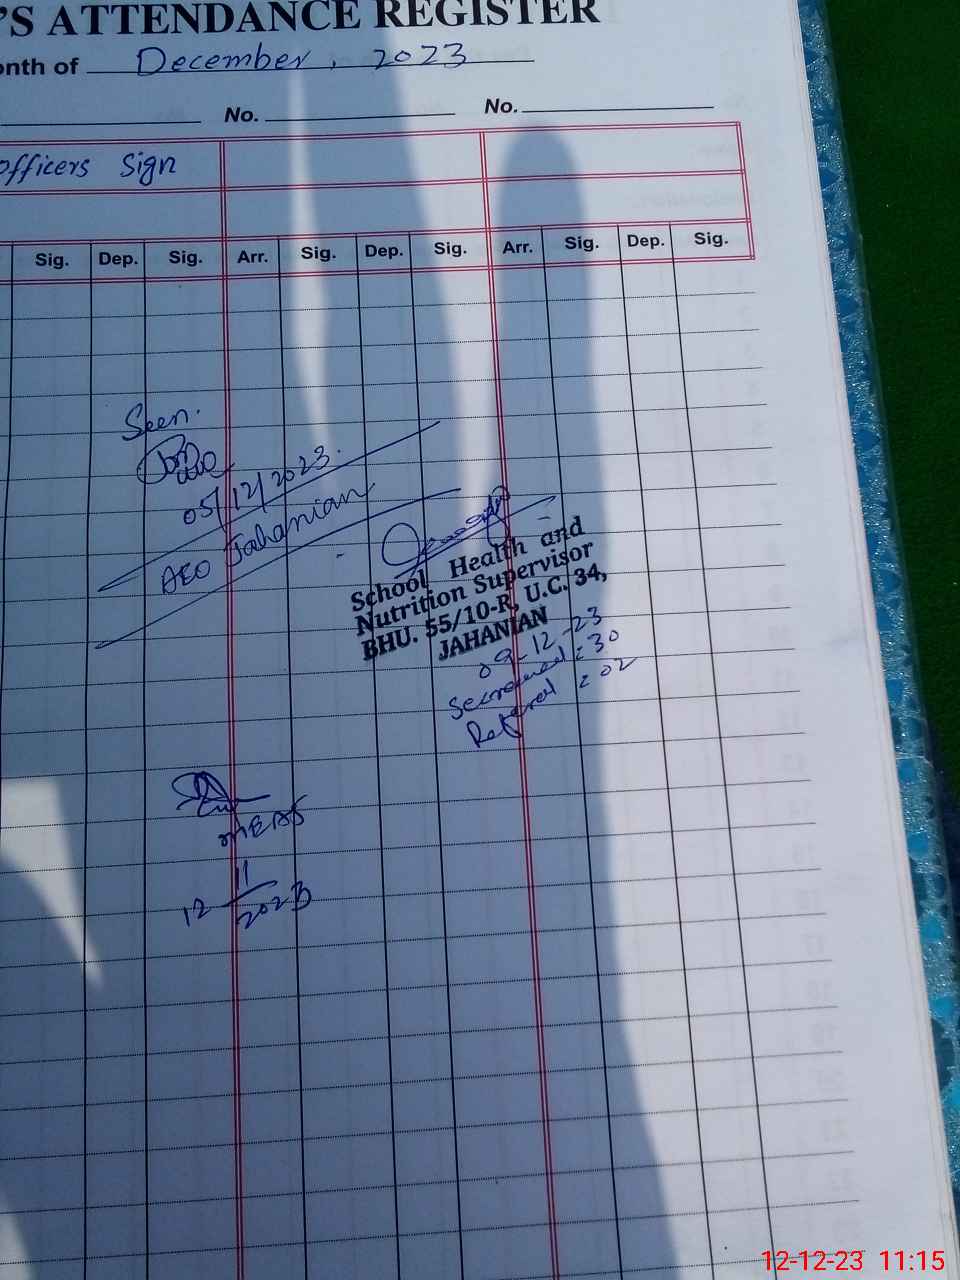 'S ATTENDANCE REGISTER
onth of December, 2023
No. No.
officers Sign
Sig. Dep. Sig. Arr. Sig. Dep. Sig. Arr. Sig. Dep. Sig.
Seen.
05/12/2023.
AEO Jahanian
School Health and
Nutrition Supervisor
BHU. 55/10-R, U.C. 34,
JAHANIAN
09-12-23
Screened : 30
Referred : 02
11
12
2023
12-12-23 11:15